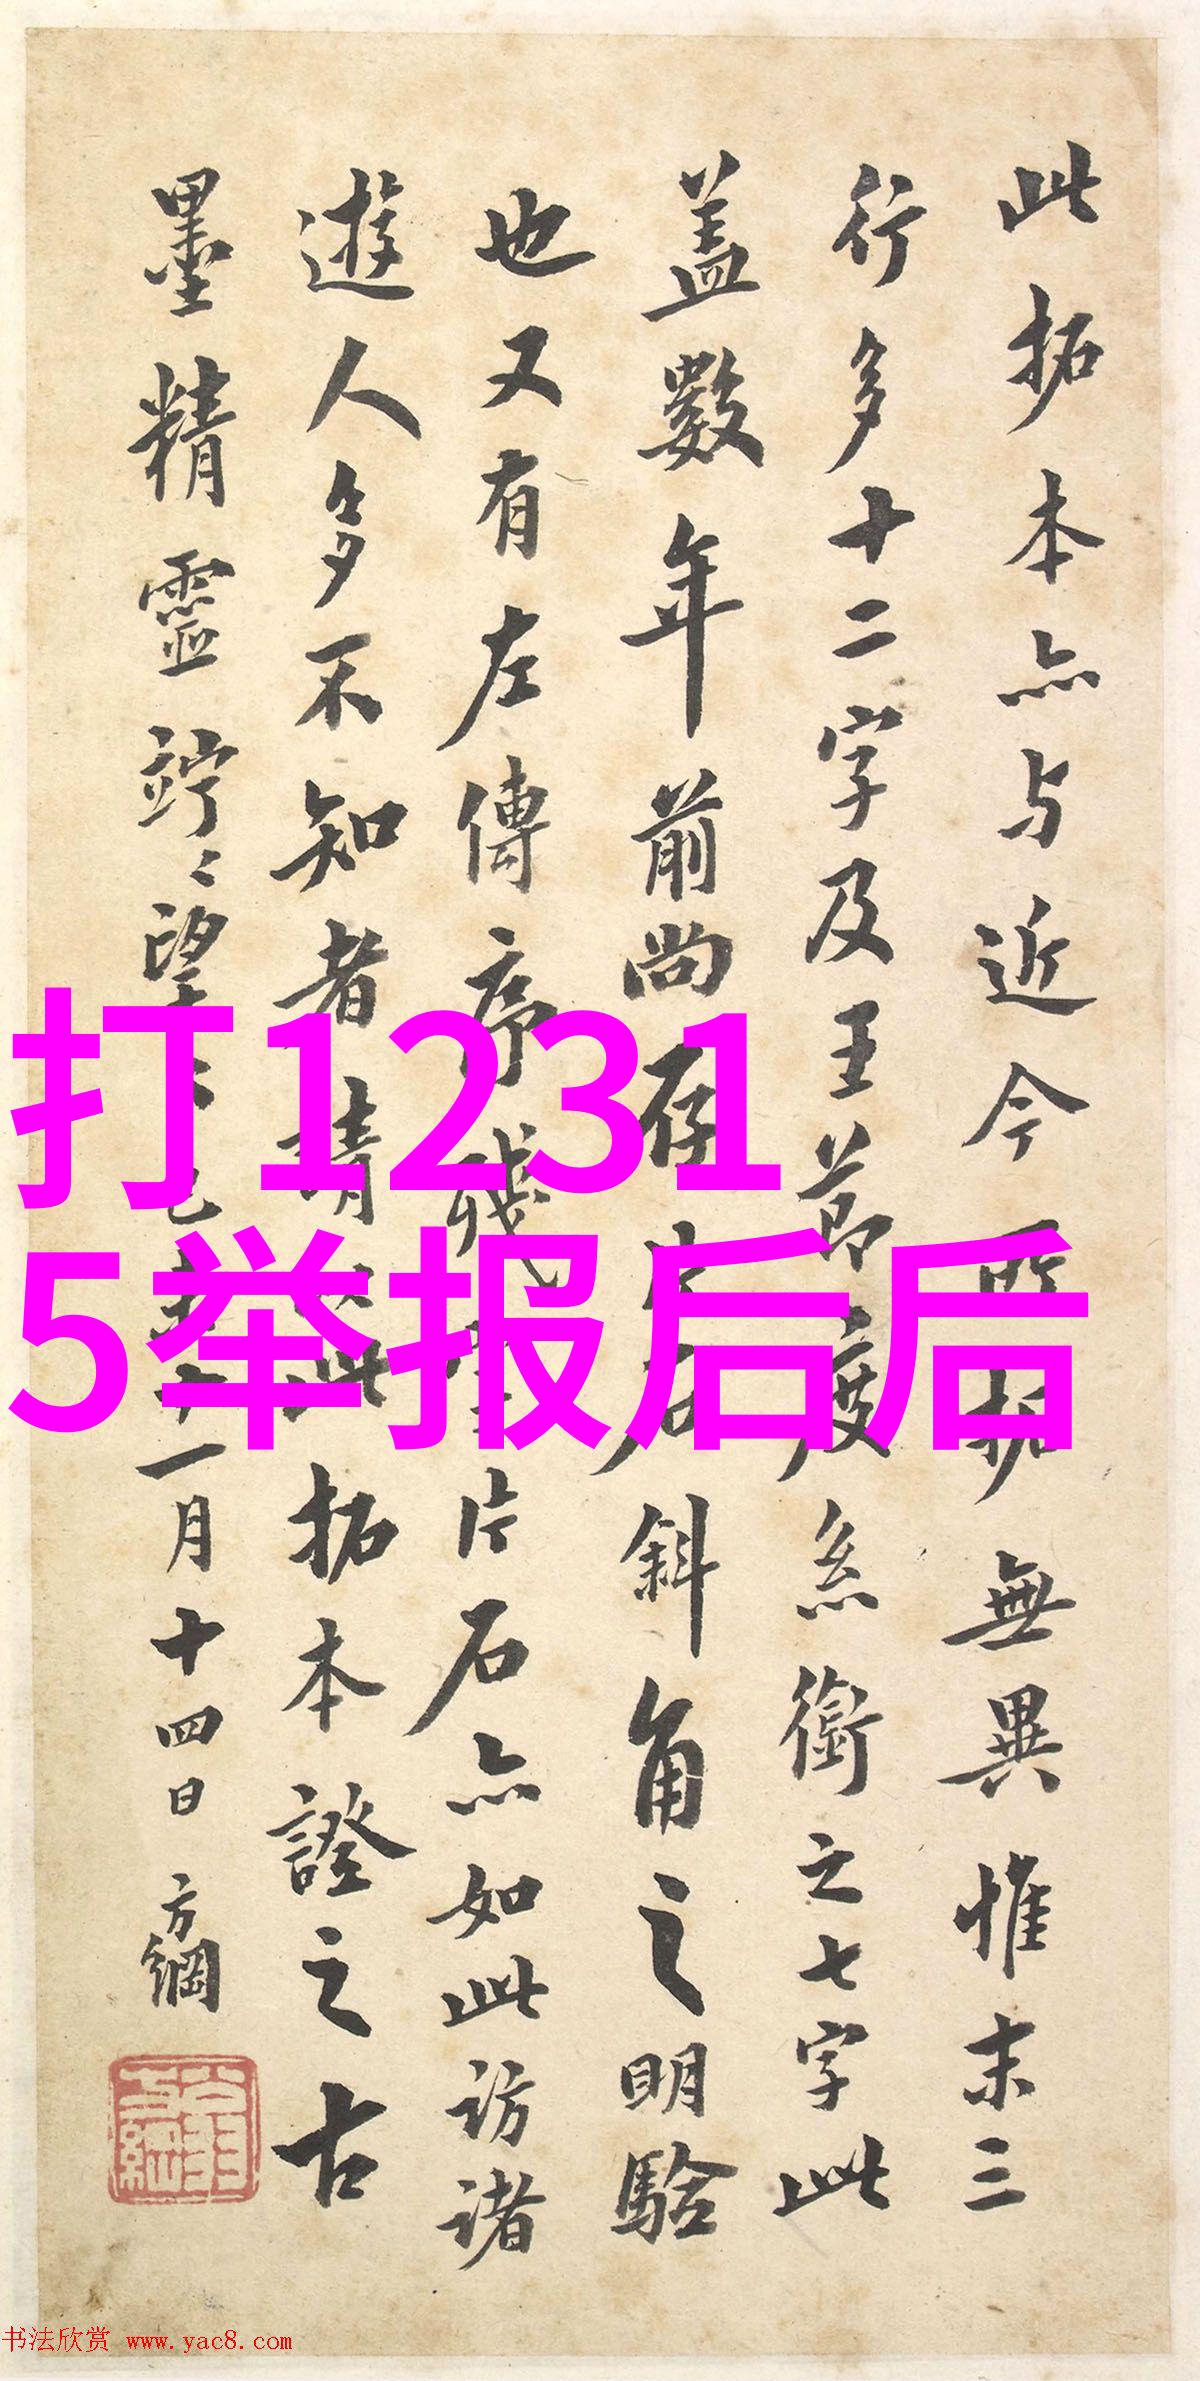 此拓本亦与近今所拓無異惟末三
行多十二字及王節度系銜之七字此
蓋數年前尚存
斜角之明驗
也又有左傳序殘
片石亦如此訪諸
遊人多不知者
拓本證之古
墨精靈竚〻望
月十四日方綱
打1231
5举报后后
书法欣赏 www.yac8.com